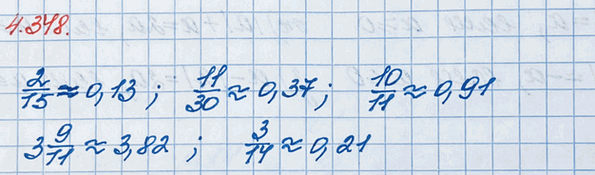 4.348.
2/15 ≈ 0,13 ; 11/30 ≈ 0,37 ; 10/11 ≈ 0,91
3 9/11 ≈ 3,82 ; 3/14 ≈ 0,21